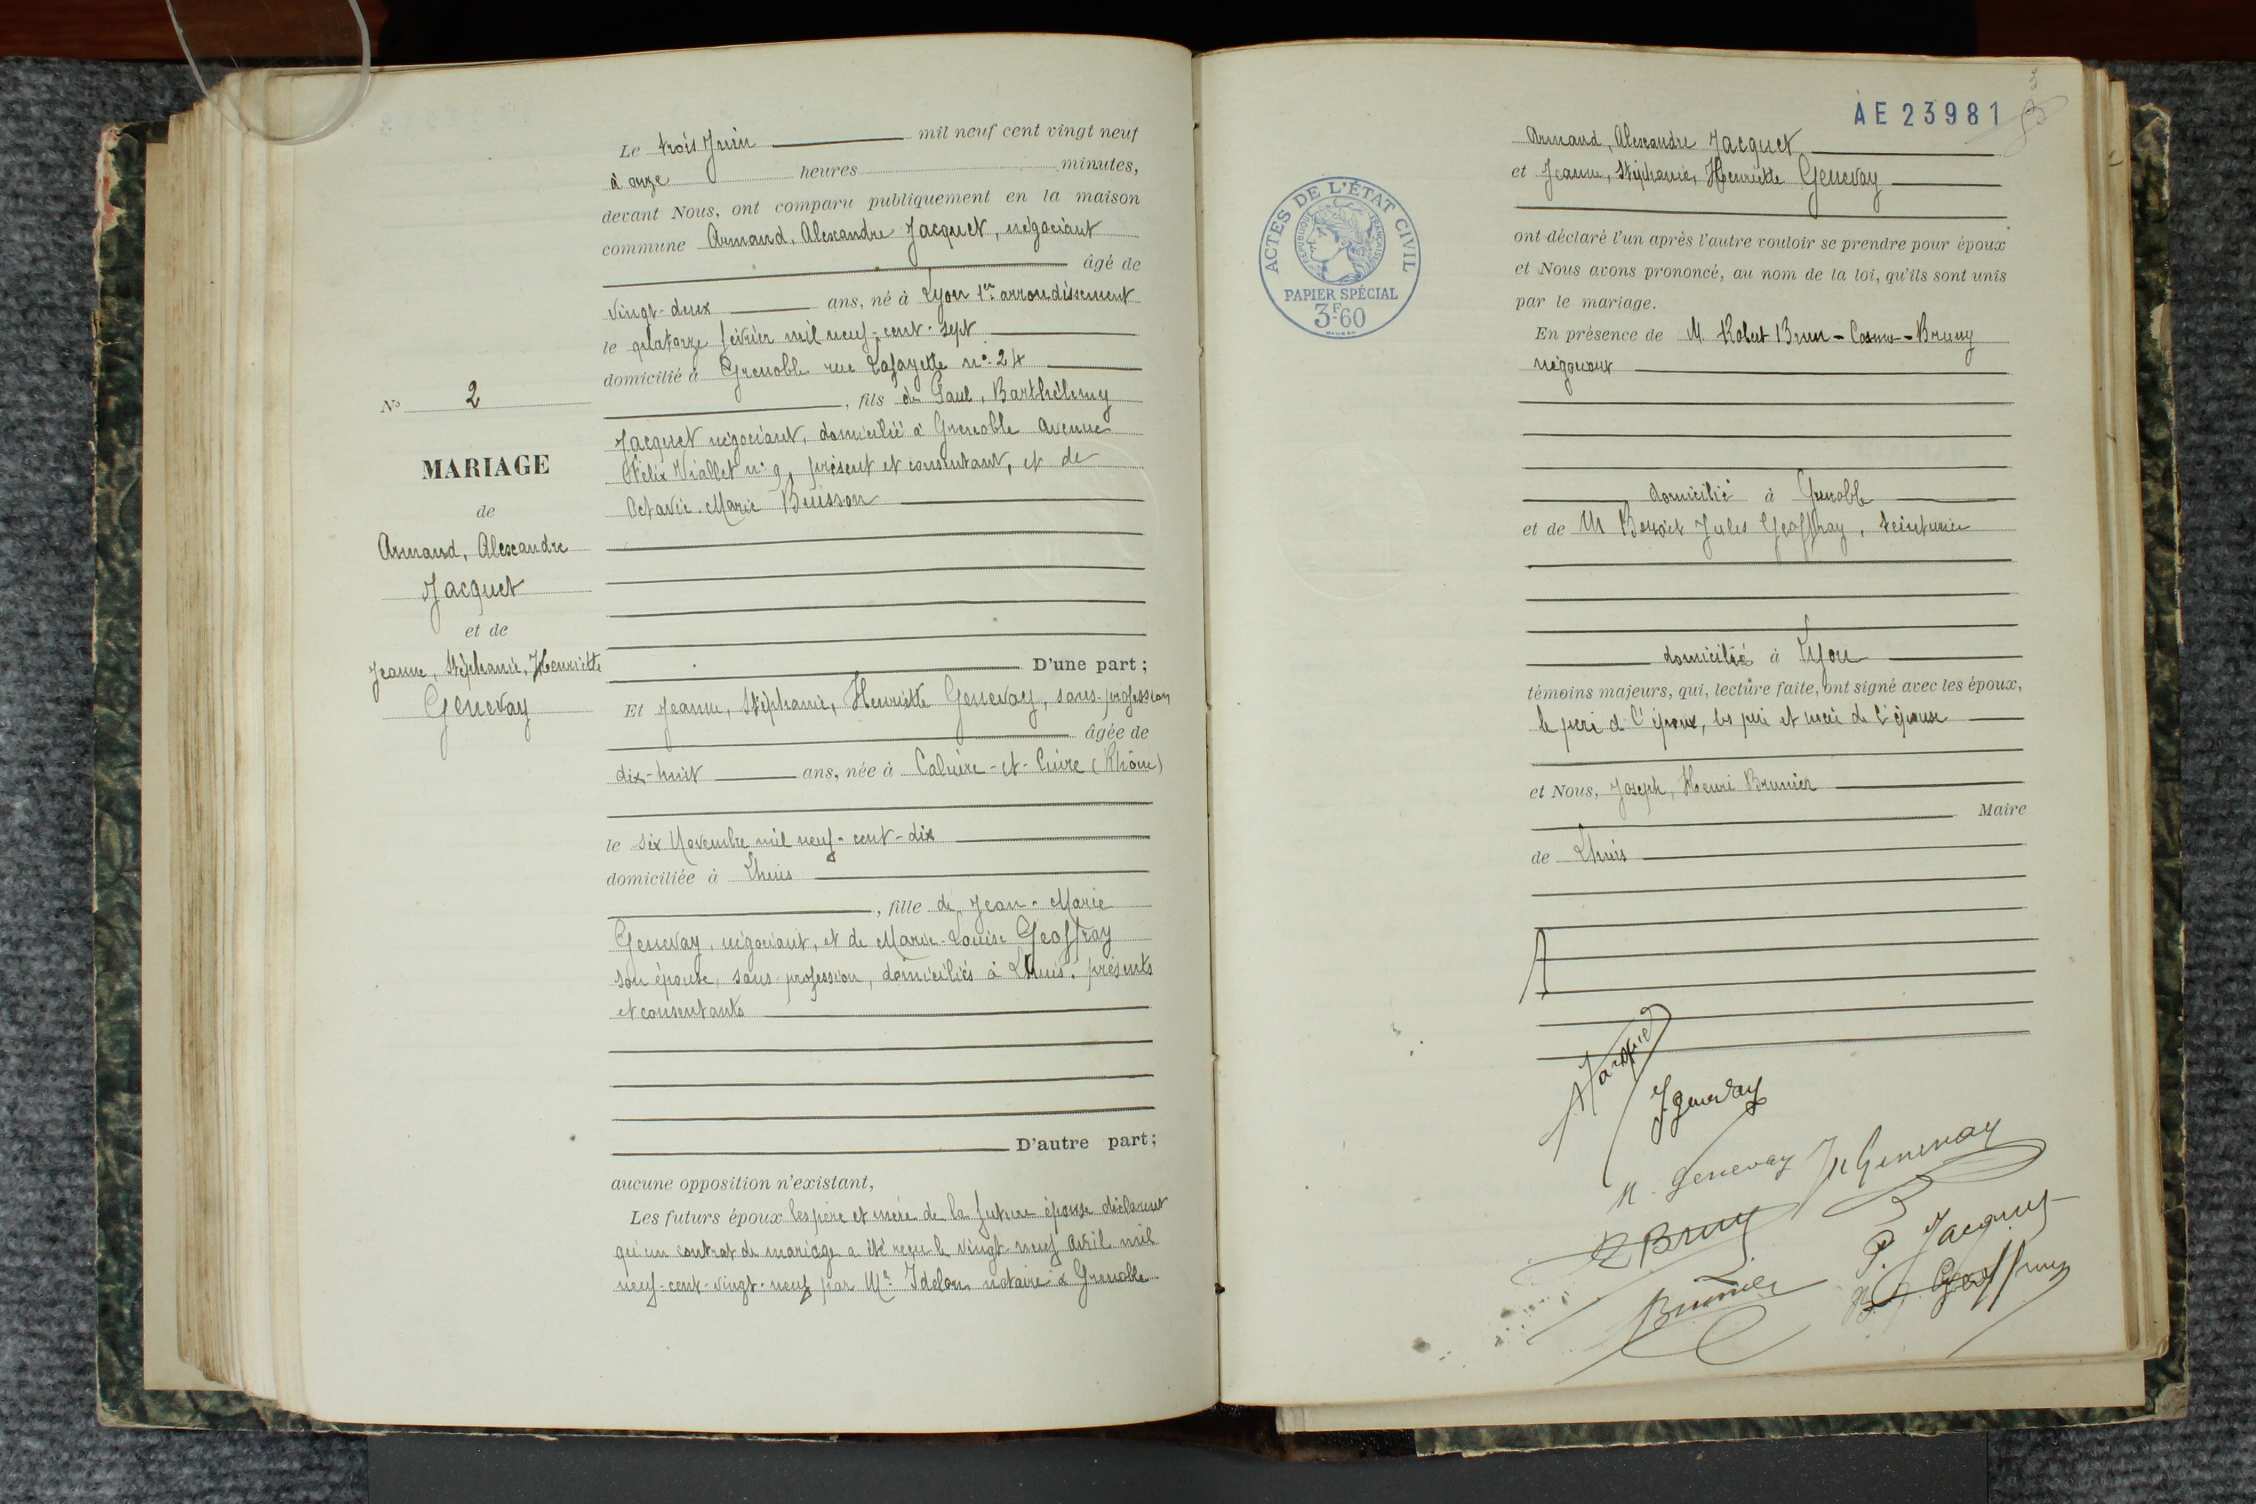 Le trois Juin mil neuf cent vingt neuf
à onze heures minutes,
devant Nous, ont comparu publiquement en la maison
commune Armand, Alexandre Jacquet, négociant
âgé de
vingt-deux ans, né à Lyon 1er arrondissement
le quatorze février mil neuf-cent-sept
domicilié à Grenoble rue Lafayette n° 24
, fils de Paul, Barthélemy
Jacquet négociant, domicilié à Grenoble avenue
Félix Viallet n° 9, présent et consentant, et de
Octavie-Marie Buisson
D'une part ;
N° 2
MARIAGE
de
Armand, Alexandre
Jacquet
et de
Jeanne, Stéphanie, Henriette
Genevay
Et Jeanne, Stéphanie, Henriette Genevay, sans-profession
âgée de
dix-huit ans, née à Caluire-et-Cuire (Rhône)
le six Novembre mil neuf-cent-dix
domiciliée à Lhuis
, fille de Jean-Marie
Genevay, négociant, et de Marie-Louise Geoffray
son épouse, sans profession, domiciliés à Lhuis. présents
et consentants
D'autre part ;
aucune opposition n'existant,
Les futurs époux les père et mère de la future épouse déclarent
qu'un contrat de mariage a été reçu le vingt neuf avril mil
neuf-cent-vingt-neuf par Me Idelon notaire à Grenoble
AE 23981
3
ACTES DE L'ÉTAT CIVIL
RÉPUBLIQUE FRANÇAISE
PAPIER SPÉCIAL
3F.60
Armand, Alexandre Jacquet
et Jeanne, Stéphanie, Henriette Genevay
ont déclaré l'un après l'autre vouloir se prendre pour époux
et Nous avons prononcé, au nom de la loi, qu'ils sont unis
par le mariage.
En présence de M. Robert Brun-Cosme-Bruny
négociant
domicilié à Grenoble
et de M Benoit Jules Geoffray, teinturier
domicilié à Lyon
témoins majeurs, qui, lecture faite, ont signé avec les époux,
le père de l'époux, les père et mère de l'épouse
et Nous, Joseph, Henri Brunier
Maire
de Lhuis
A Jacquet
J Genevay
M. Genevay
JM Genevay
R Bruny
P. Jacquet
Brunier
B. J. Geoffray